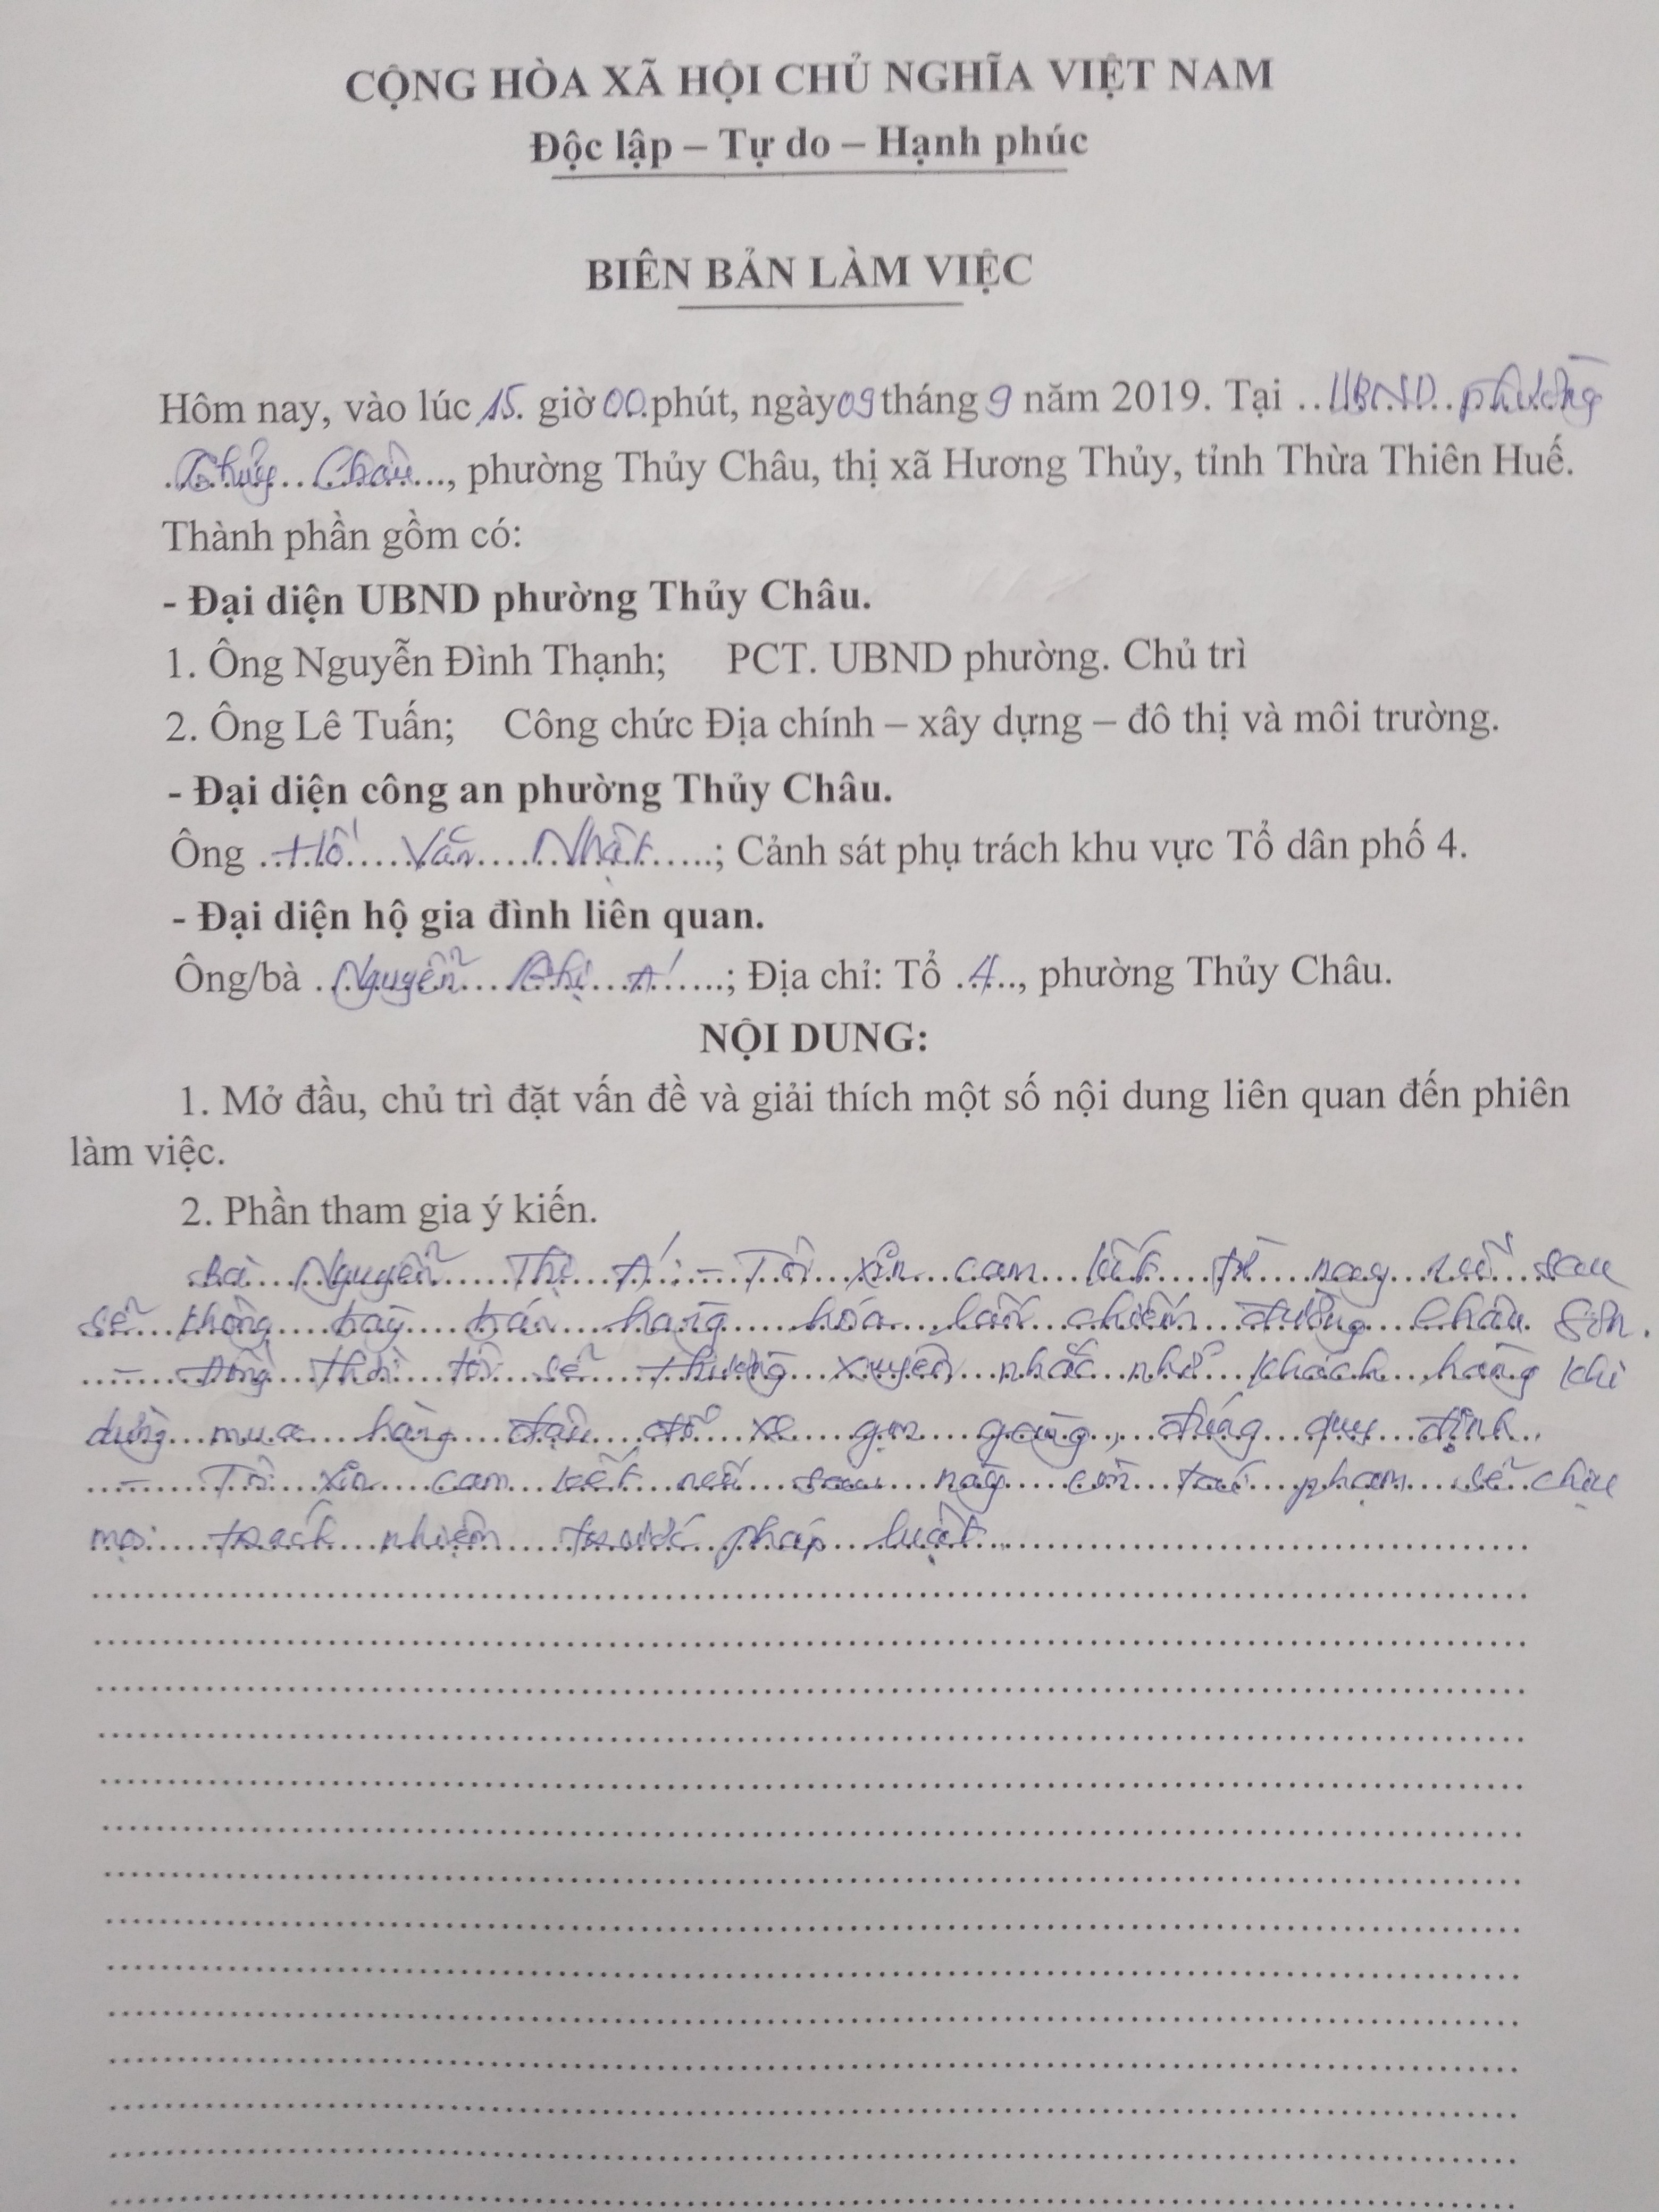 CỘNG HÒA XÃ HỘI CHỦ NGHĨA VIỆT NAM
Độc lập – Tự do – Hạnh phúc
BIÊN BẢN LÀM VIỆC
Hôm nay, vào lúc 15 giờ 00 phút, ngày 09 tháng 9 năm 2019. Tại UBND phường
Thủy Châu, phường Thủy Châu, thị xã Hương Thủy, tỉnh Thừa Thiên Huế.
Thành phần gồm có:
- Đại diện UBND phường Thủy Châu.
1. Ông Nguyễn Đình Thạnh; PCT. UBND phường. Chủ trì
2. Ông Lê Tuấn; Công chức Địa chính – xây dựng – đô thị và môi trường.
- Đại diện công an phường Thủy Châu.
Ông Hồ Văn Nhật; Cảnh sát phụ trách khu vực Tổ dân phố 4.
- Đại diện hộ gia đình liên quan.
Ông/bà Nguyễn Thị Á; Địa chỉ: Tổ 4, phường Thủy Châu.
NỘI DUNG:
1. Mở đầu, chủ trì đặt vấn đề và giải thích một số nội dung liên quan đến phiên
làm việc.
2. Phần tham gia ý kiến.
Bà Nguyễn Thị Á: - Tôi xin cam kết từ nay về sau
sẽ không bày bán hàng hóa lấn chiếm đường Châu Sơn.
- Đồng thời tôi sẽ thường xuyên nhắc nhở khách hàng khi
dừng mua hàng đậu đỗ xe gọn gàng, đúng quy định.
- Tôi xin cam kết nếu sau này còn tái phạm sẽ chịu
mọi trách nhiệm trước pháp luật.